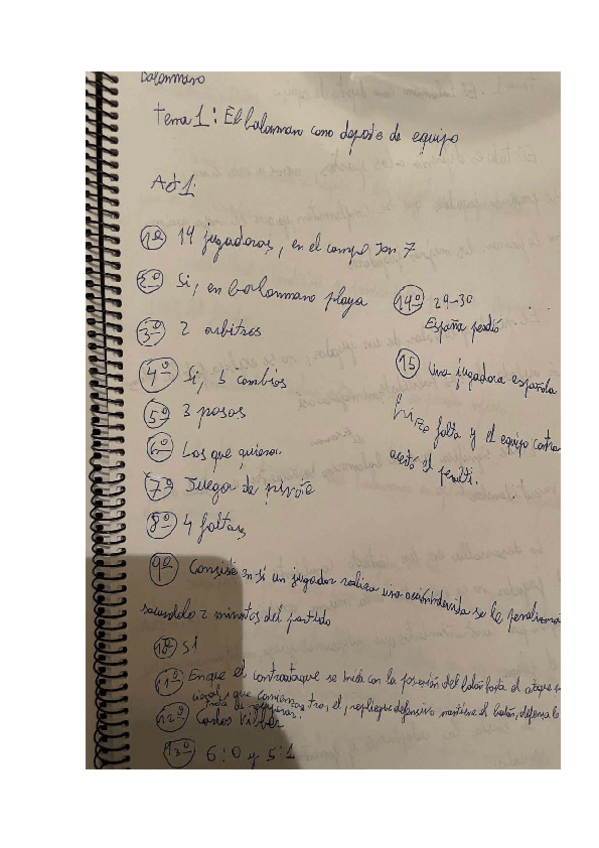 Balonmano
Tema 1: El balonmano como deporte de equipo
Act 1:
1º 14 jugadoras, en el campo son 7
2º Si, en balonmano playa
3º 2 arbitros
4º Si, 5 cambios
5º 3 pasos
6º Los que quieran
7º Juegar de pivote
8º 4 faltas
9º Consiste en si un jugador realiza una acción indevida se le penaliza
sacandolo 2 minutos del partido
10º Si
11º En que el contraataque se inicia con la posesión del balón hasta el ataque
que comienza tras el repliegue defensivo mantiene el balón, defensa
trata de recuperar.
12º Carlos
13º 6:0 y 5:1
14º 29-30
España perdió
15 una jugadora española
hizo falta y el equipo contra
acertó el penalti.